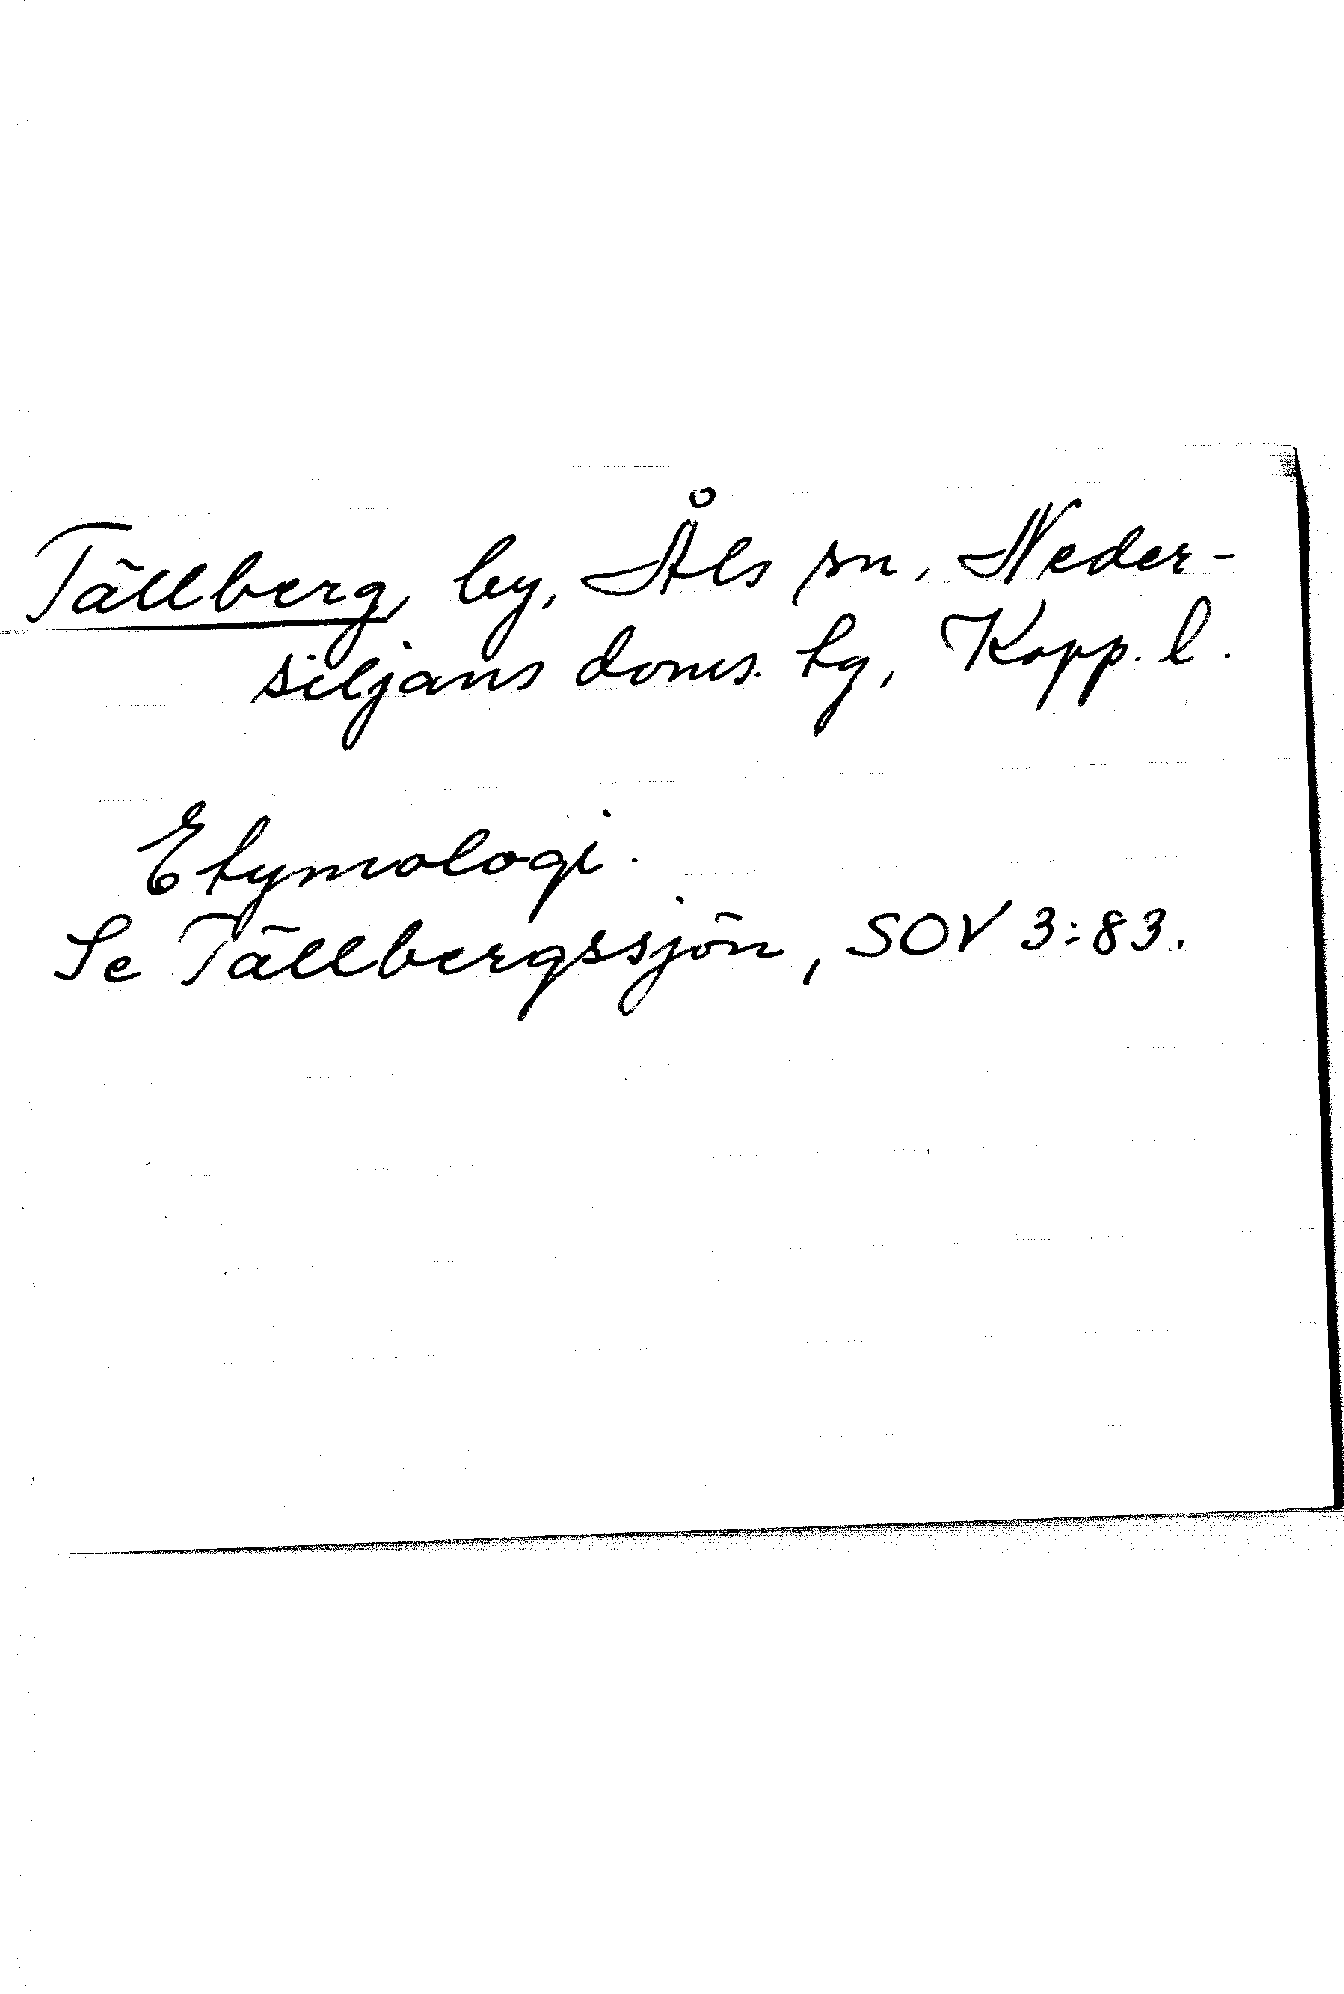 Tällberg, by, Åls sn, Neder-
siljans doms. tg, Kopp. l.
Etymologi.
Se Tällbergssjön, SOV 3:83.